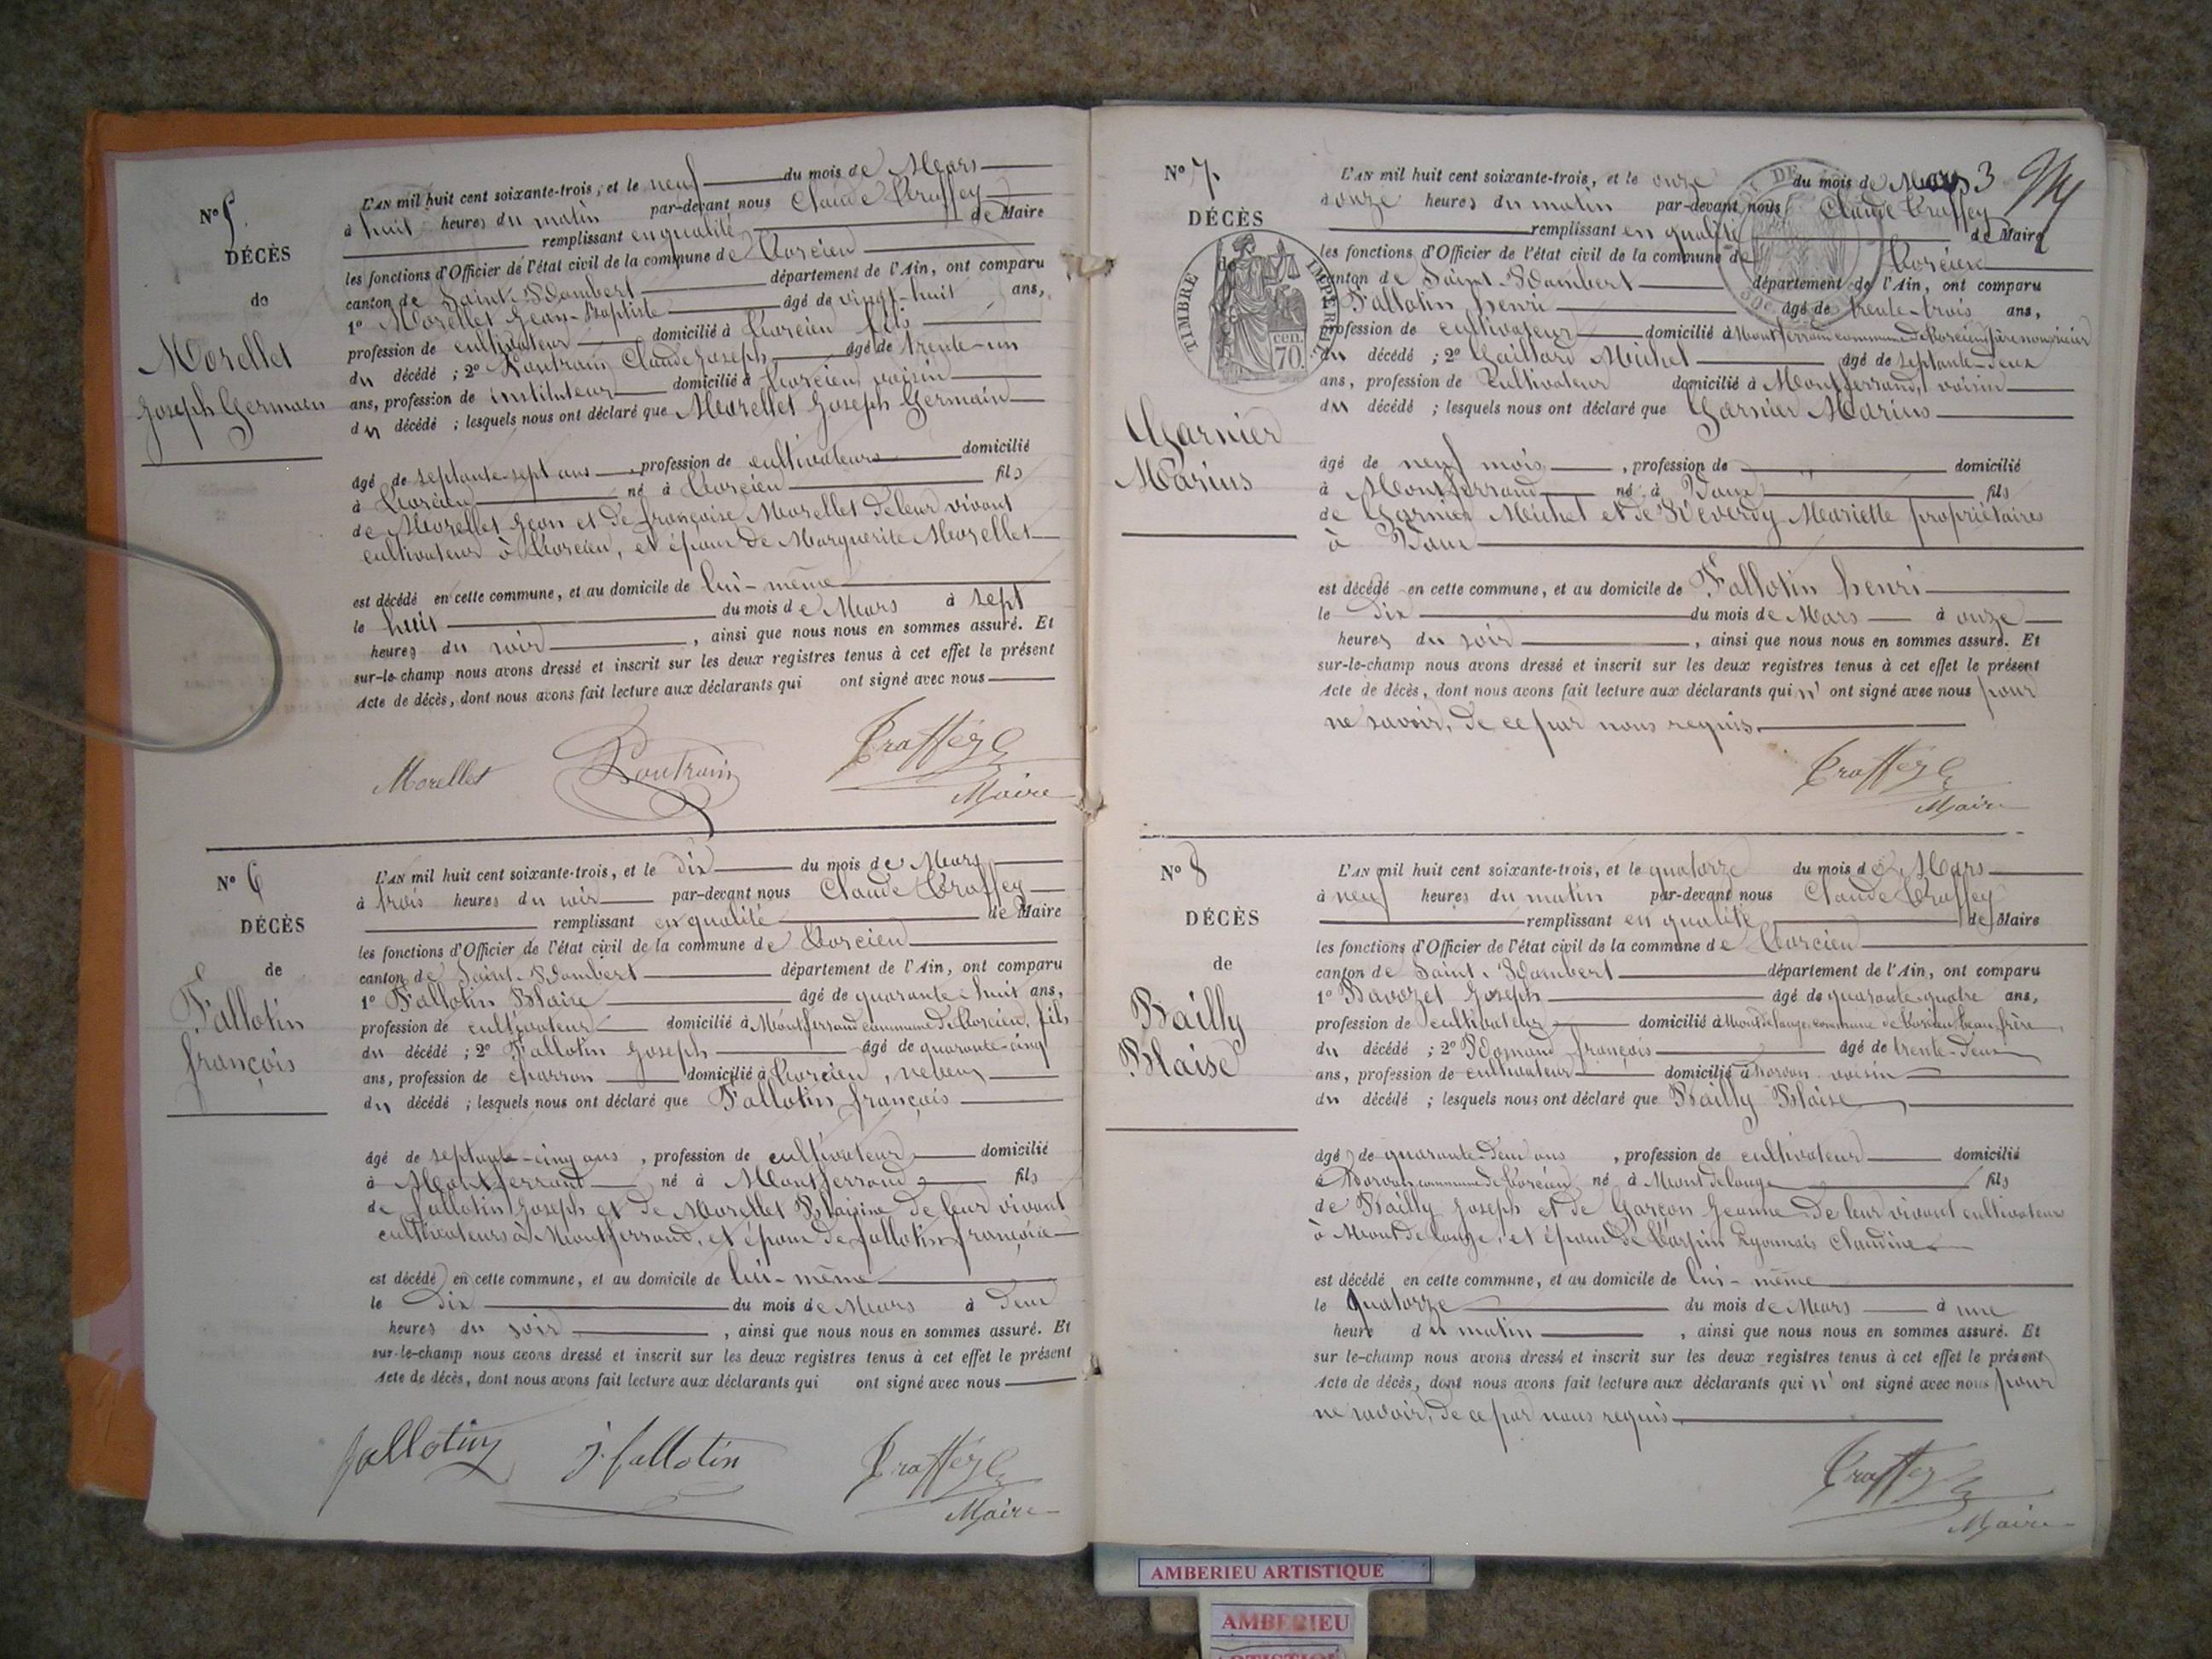 N° 5.
DÉCÈS
de
Morellet
Joseph Germain
L'AN mil huit cent soixante-trois, et le neuf du mois de Mars
à huit heures du matin par-devant nous Claude Traffey
remplissant en qualité de Maire
les fonctions d'Officier de l'état civil de la commune de Torcieu
canton de Saint-Rambert département de l'Ain, ont comparu
1° Morellet Jean-Baptiste âgé de vingt-huit ans,
profession de cultivateur domicilié à Torcieu fils
du décédé ; 2° Claude Joseph âgé de trente-un
ans, profession de instituteur domicilié à Torcieu, voisin
du décédé ; lesquels nous ont déclaré que Morellet Joseph Germain
âgé de septante-sept ans, profession de cultivateur domicilié
à Torcieu né à Torcieu fils
de Morellet Jean et de françoise Morellet de leur vivant
cultivateurs à Torcieu, et époux de Marguerite Morellet
est décédé en cette commune, et au domicile de lui-même
le huit du mois de Mars à sept
heures du soir, ainsi que nous nous en sommes assuré. Et
sur-le-champ nous avons dressé et inscrit sur les deux registres tenus à cet effet le présent
Acte de décès, dont nous avons fait lecture aux déclarants qui ont signé avec nous
Morellet Traffey C
Maire
N° 6
DÉCÈS
de
Fallotin
françois
L'AN mil huit cent soixante-trois, et le dix du mois de Mars
à trois heures du soir par-devant nous Claude Traffey
remplissant en qualité de Maire
les fonctions d'Officier de l'état civil de la commune de Torcieu
canton de Saint-Rambert département de l'Ain, ont comparu
1° Fallotin Blaise âgé de quarante-huit ans,
profession de cultivateur domicilié à Montferrand commune de Torcieu, fils
du décédé ; 2° Fallotin Joseph âgé de quarante-cinq
ans, profession de charron domicilié à Torcieu, neveu
du décédé ; lesquels nous ont déclaré que Fallotin françois
âgé de septante-cinq ans, profession de cultivateur domicilié
à Montferrand né à Montferrand fils
de fallotin Joseph et de Morellet Blaisine de leur vivant
cultivateurs à Montferrand, et époux de fallotin françoise
est décédé en cette commune, et au domicile de lui-même
le dix du mois de Mars à deux
heures du soir, ainsi que nous nous en sommes assuré. Et
sur-le-champ nous avons dressé et inscrit sur les deux registres tenus à cet effet le présent
Acte de décès, dont nous avons fait lecture aux déclarants qui ont signé avec nous
fallotin j. fallotin Traffey C
Maire
3
N° 7.
DÉCÈS
de
TIMBRE IMPÉRIAL
70 cen.
Garnier
Marius
L'AN mil huit cent soixante-trois, et le onze du mois de Mars
à onze heures du matin par-devant nous Claude Traffey
remplissant en qualité de Maire
les fonctions d'Officier de l'état civil de la commune de Torcieu
canton de Saint-Rambert département de l'Ain, ont comparu
1° Fallotin henri âgé de trente-trois ans,
profession de cultivateur domicilié à Montferrand commune de Torcieu père nourricier
du décédé ; 2° Gaillard Michel âgé de septante-deux
ans, profession de cultivateur domicilié à Montferrand, voisin
du décédé ; lesquels nous ont déclaré que Garnier Marius
âgé de neuf mois, profession de " domicilié
à Montferrand né à fils
de Garnier Michel et de Reverdy Mariette propriétaires
à
est décédé en cette commune, et au domicile de Fallotin henri
le dix du mois de Mars à onze
heures du soir, ainsi que nous nous en sommes assuré. Et
sur-le-champ nous avons dressé et inscrit sur les deux registres tenus à cet effet le présent
Acte de décès, dont nous avons fait lecture aux déclarants qui n'ont signé avec nous pour
ne savoir, de ce par nous requis.
Traffey C
Maire
N° 8
DÉCÈS
de
Bailly
Blaise
L'AN mil huit cent soixante-trois, et le quatorze du mois de Mars
à neuf heures du matin par-devant nous Claude Traffey
remplissant en qualité de Maire
les fonctions d'Officier de l'état civil de la commune de Torcieu
canton de Saint-Rambert département de l'Ain, ont comparu
1° Bavozet Joseph âgé de quarante-quatre ans,
profession de cultivateur domicilié à Montdelange, commune de Torcieu, beau-frère
du décédé ; 2° françois âgé de trente-deux
ans, profession de cultivateur domicilié à Dorvan voisin
du décédé ; lesquels nous ont déclaré que Bailly Blaise
âgé de quarante-deux ans, profession de cultivateur domicilié
à Dorvan commune de Torcieu né à Montdelange fils
de Bailly Joseph et de Garçon Jeanne de leur vivant cultivateurs
à Montdelange, et époux de Carpin Lyonnais Claudine
est décédé en cette commune, et au domicile de lui-même
le quatorze du mois de Mars à une
heure du matin, ainsi que nous nous en sommes assuré. Et
sur le-champ nous avons dressé et inscrit sur les deux registres tenus à cet effet le présent
Acte de décès, dont nous avons fait lecture aux déclarants qui n'ont signé avec nous pour
ne savoir, de ce par nous requis.
Traffey C
Maire
AMBERIEU ARTISTIQUE
AMBERIEU
ARTISTIQUE